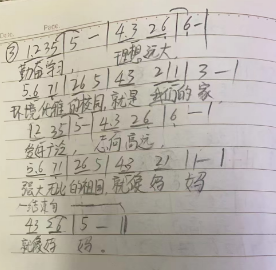 ③ 1 2 35 | 5 — | 4 3 2 6 | 6 — |
勤奋学习, 理想远大
5.6 71 | 26 5 | 43 2 1 | 3 — |
环境优雅的校园,就是 我们的家
12 35 | 5 — | 43 26 | 6 — |
志向高远,
5.6 71 | 26 5 | 43 21 | 1 — |
强大无比的祖国 就像妈 妈
一结束句
43 26 | 5 — |
就像妈 妈。